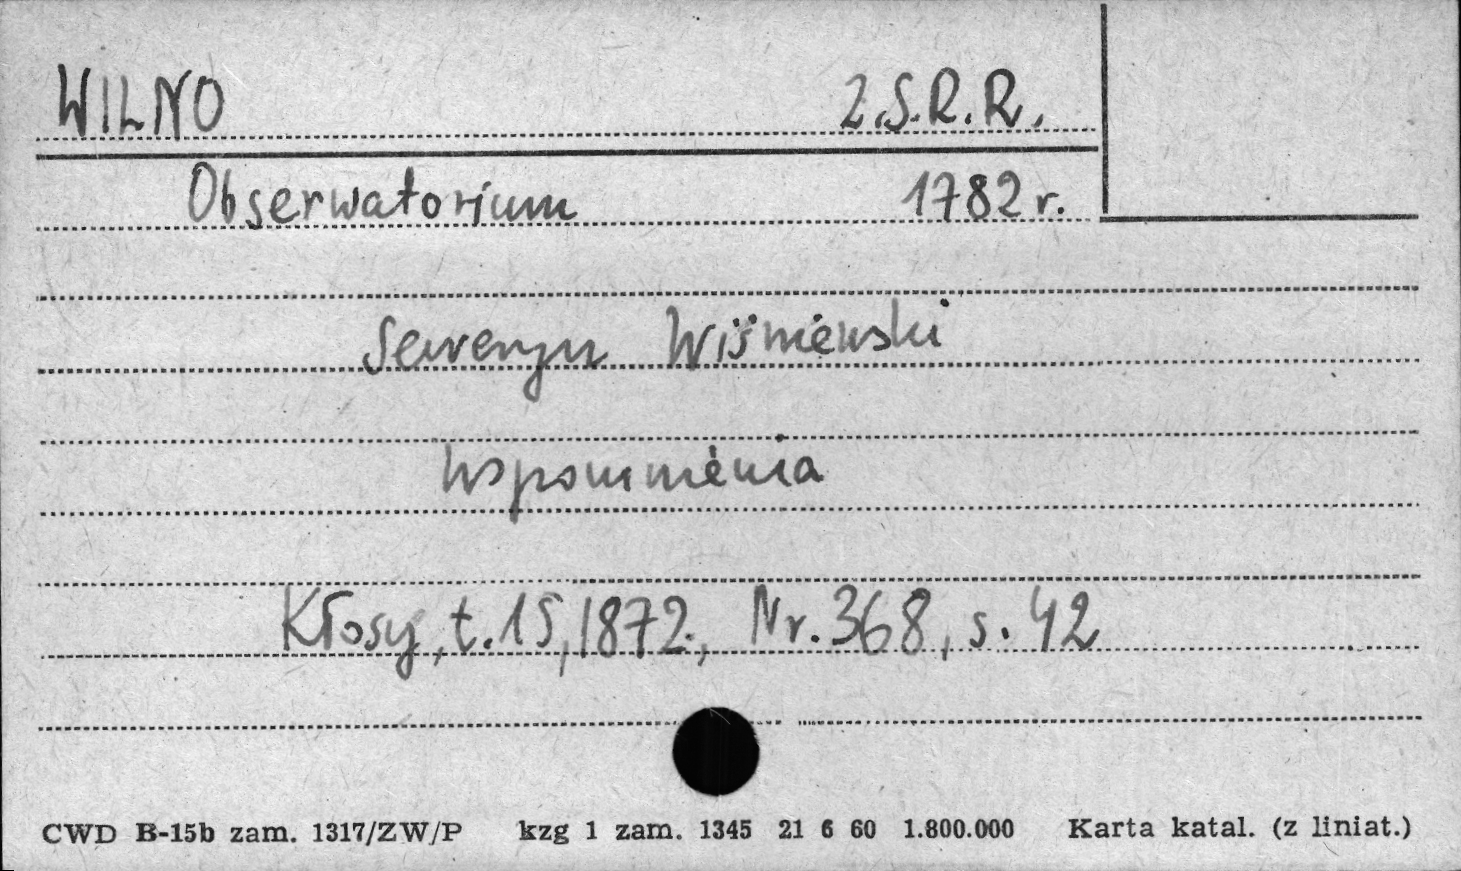 WILNO Z.S.R.R.
Obserwatorium 1782 r.
Seweryn Wiśniewski
Wspomnienia
Kłosy, t. 15, 1872., Nr. 368, s. 42
CWD B-15b zam. 1317/ZW/P kzg 1 zam. 1345 21 6 60 1.800.000 Karta katal. (z liniat.)